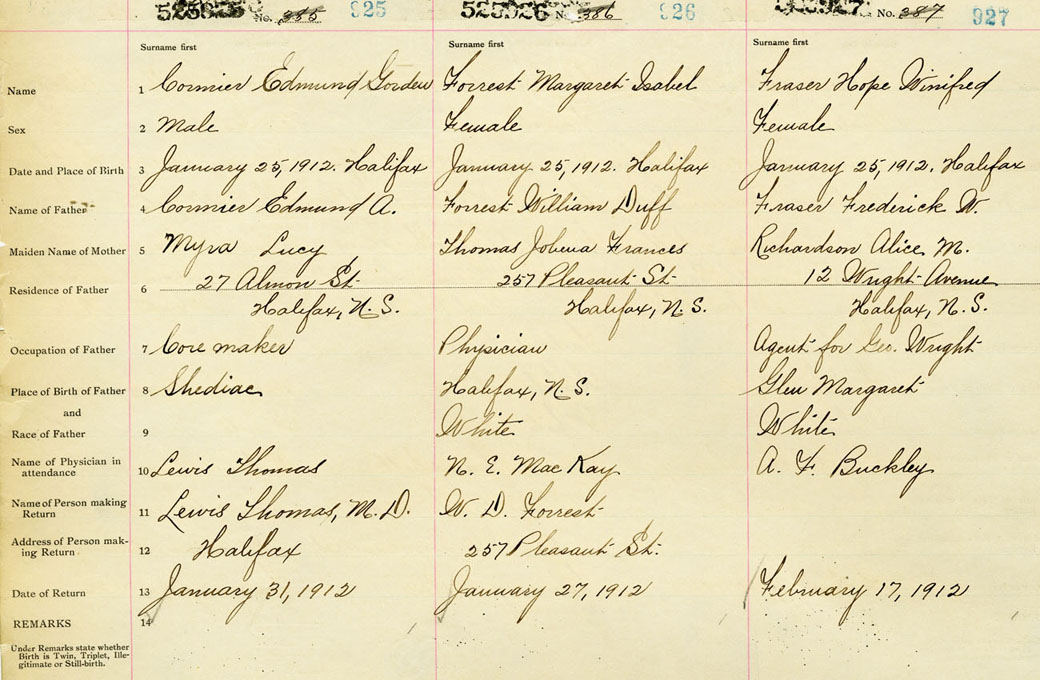 No. 385 925 No. 386 926 No. 387 927
Surname first Surname first Surname first
Name 1 Cormier Edmund Gorden Forrest Margaret Isabel Fraser Hope Winifred
Sex 2 Male Female Female
Date and Place of Birth 3 January 25, 1912. Halifax January 25, 1912. Halifax January 25, 1912. Halifax
Name of Father 4 Cormier Edmund A. Forrest William Duff Fraser Frederick W.
Maiden Name of Mother 5 Myra Lucy Thomas Jobena Frances Richardson Alice M.
Residence of Father 6 27 Almon St. 257 Pleasant St. 12 Wright Avenue
Halifax, N.S. Halifax, N.S. Halifax, N.S.
Occupation of Father 7 Core maker Physician Agent for Geo. Wright
Place of Birth of Father 8 Shediac Halifax, N.S. Glen Margaret
and
Race of Father 9 White White
Name of Physician in attendance 10 Lewis Thomas N. E. MacKay A. F. Buckley
Name of Person making Return 11 Lewis Thomas, M.D. W. D. Forrest
Address of Person mak-ing Return 12 Halifax 257 Pleasant St.
Date of Return 13 January 31, 1912 January 27, 1912 February 17, 1912
REMARKS 14
Under Remarks state whether
Birth is Twin, Triplet, Ille-
gitimate or Still-birth.